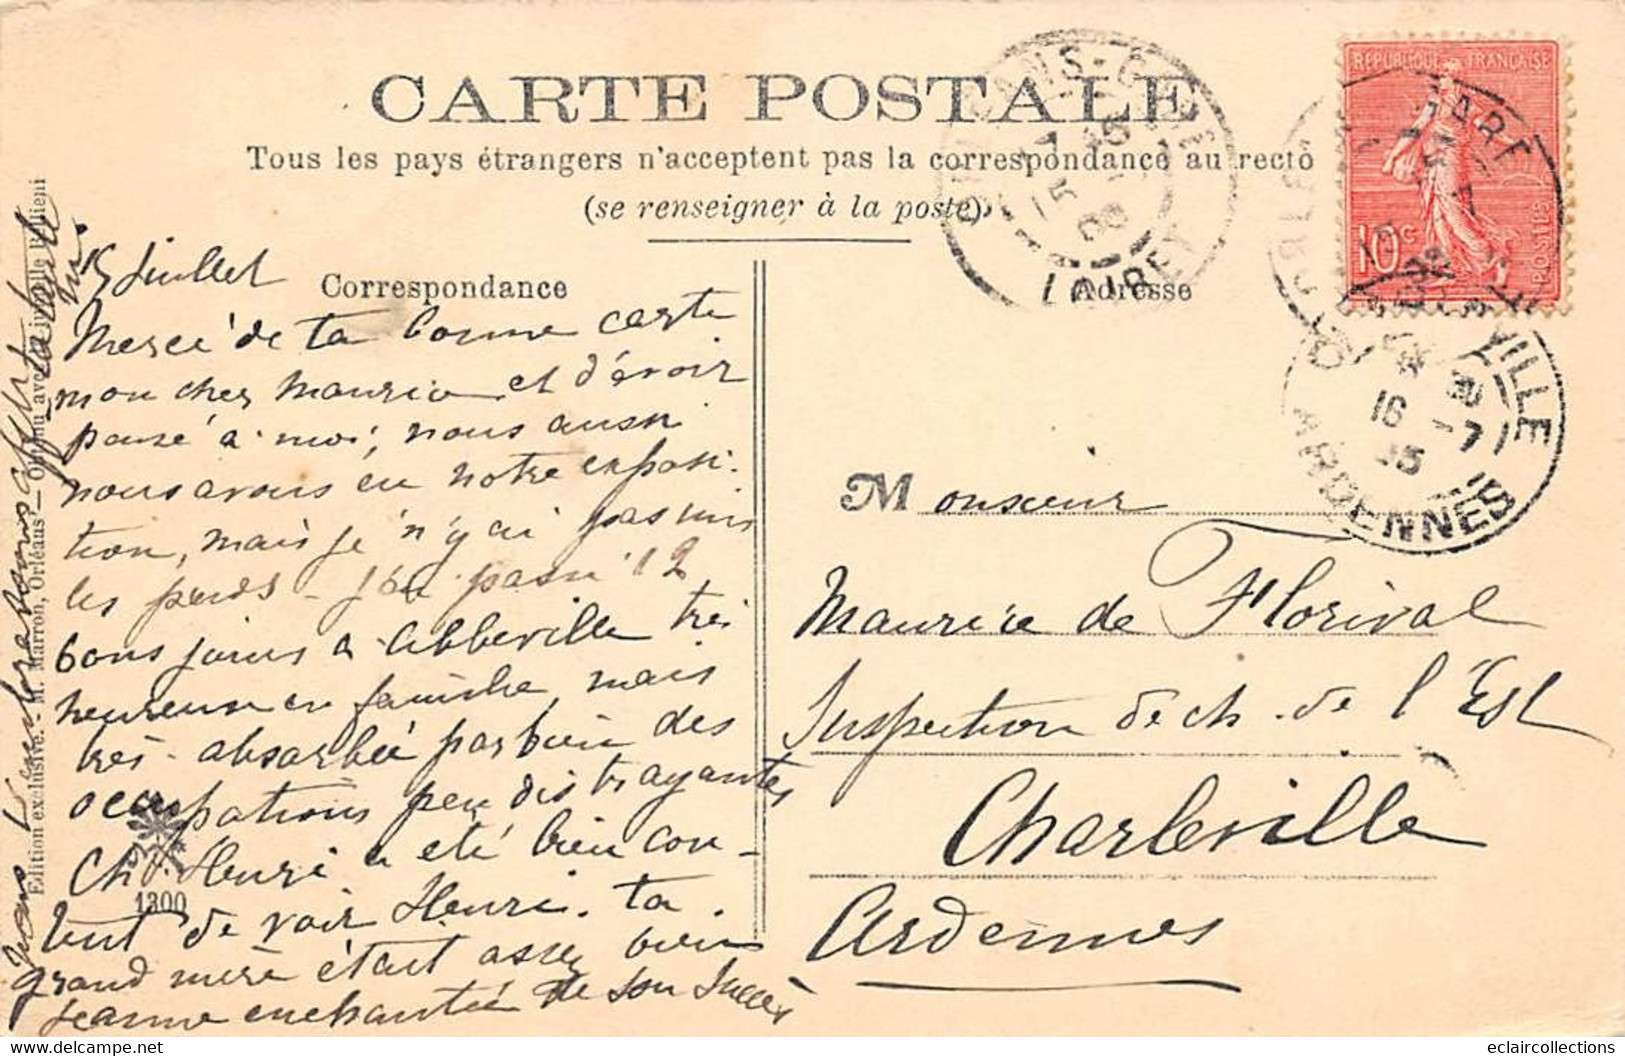 CARTE POSTALE
Tous les pays étrangers n'acceptent pas la correspondance au recto
(se renseigner à la poste)
Correspondance
Adresse
15 Juillet
Merci de ta bonne carte
mon cher Maurice et d'avoir
pensé à moi, nous aussi
nous avons eu notre exposi-
tion, mais je n'y ai pas mis
les pieds - j'ai passé 12
bons jours à Abbeville très
heureuse en famille, mais
très absorbée par bien des
occupations peu distrayantes
Ch. Henri a été bien con-
tent de voir Henri. ta
grand mère était assez bien
Jeanne enchantée de son succès
nous t'embrassons
Edition exclusive. - M. Marron, Orléans
1300
Monsieur
Maurice de Florival
Inspection de ch. de l'Est
Charleville
Ardennes
REPUBLIQUE FRANÇAISE
10c
POSTES
LOIRET
GARE
CHARLEVILLE
16 -7
ARDENNES
delcampe.net
eclaircollections